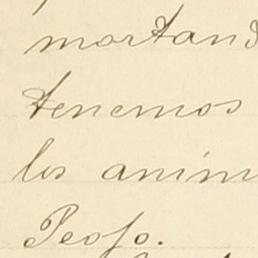 mortand
tenemos
los anim
Peofo.